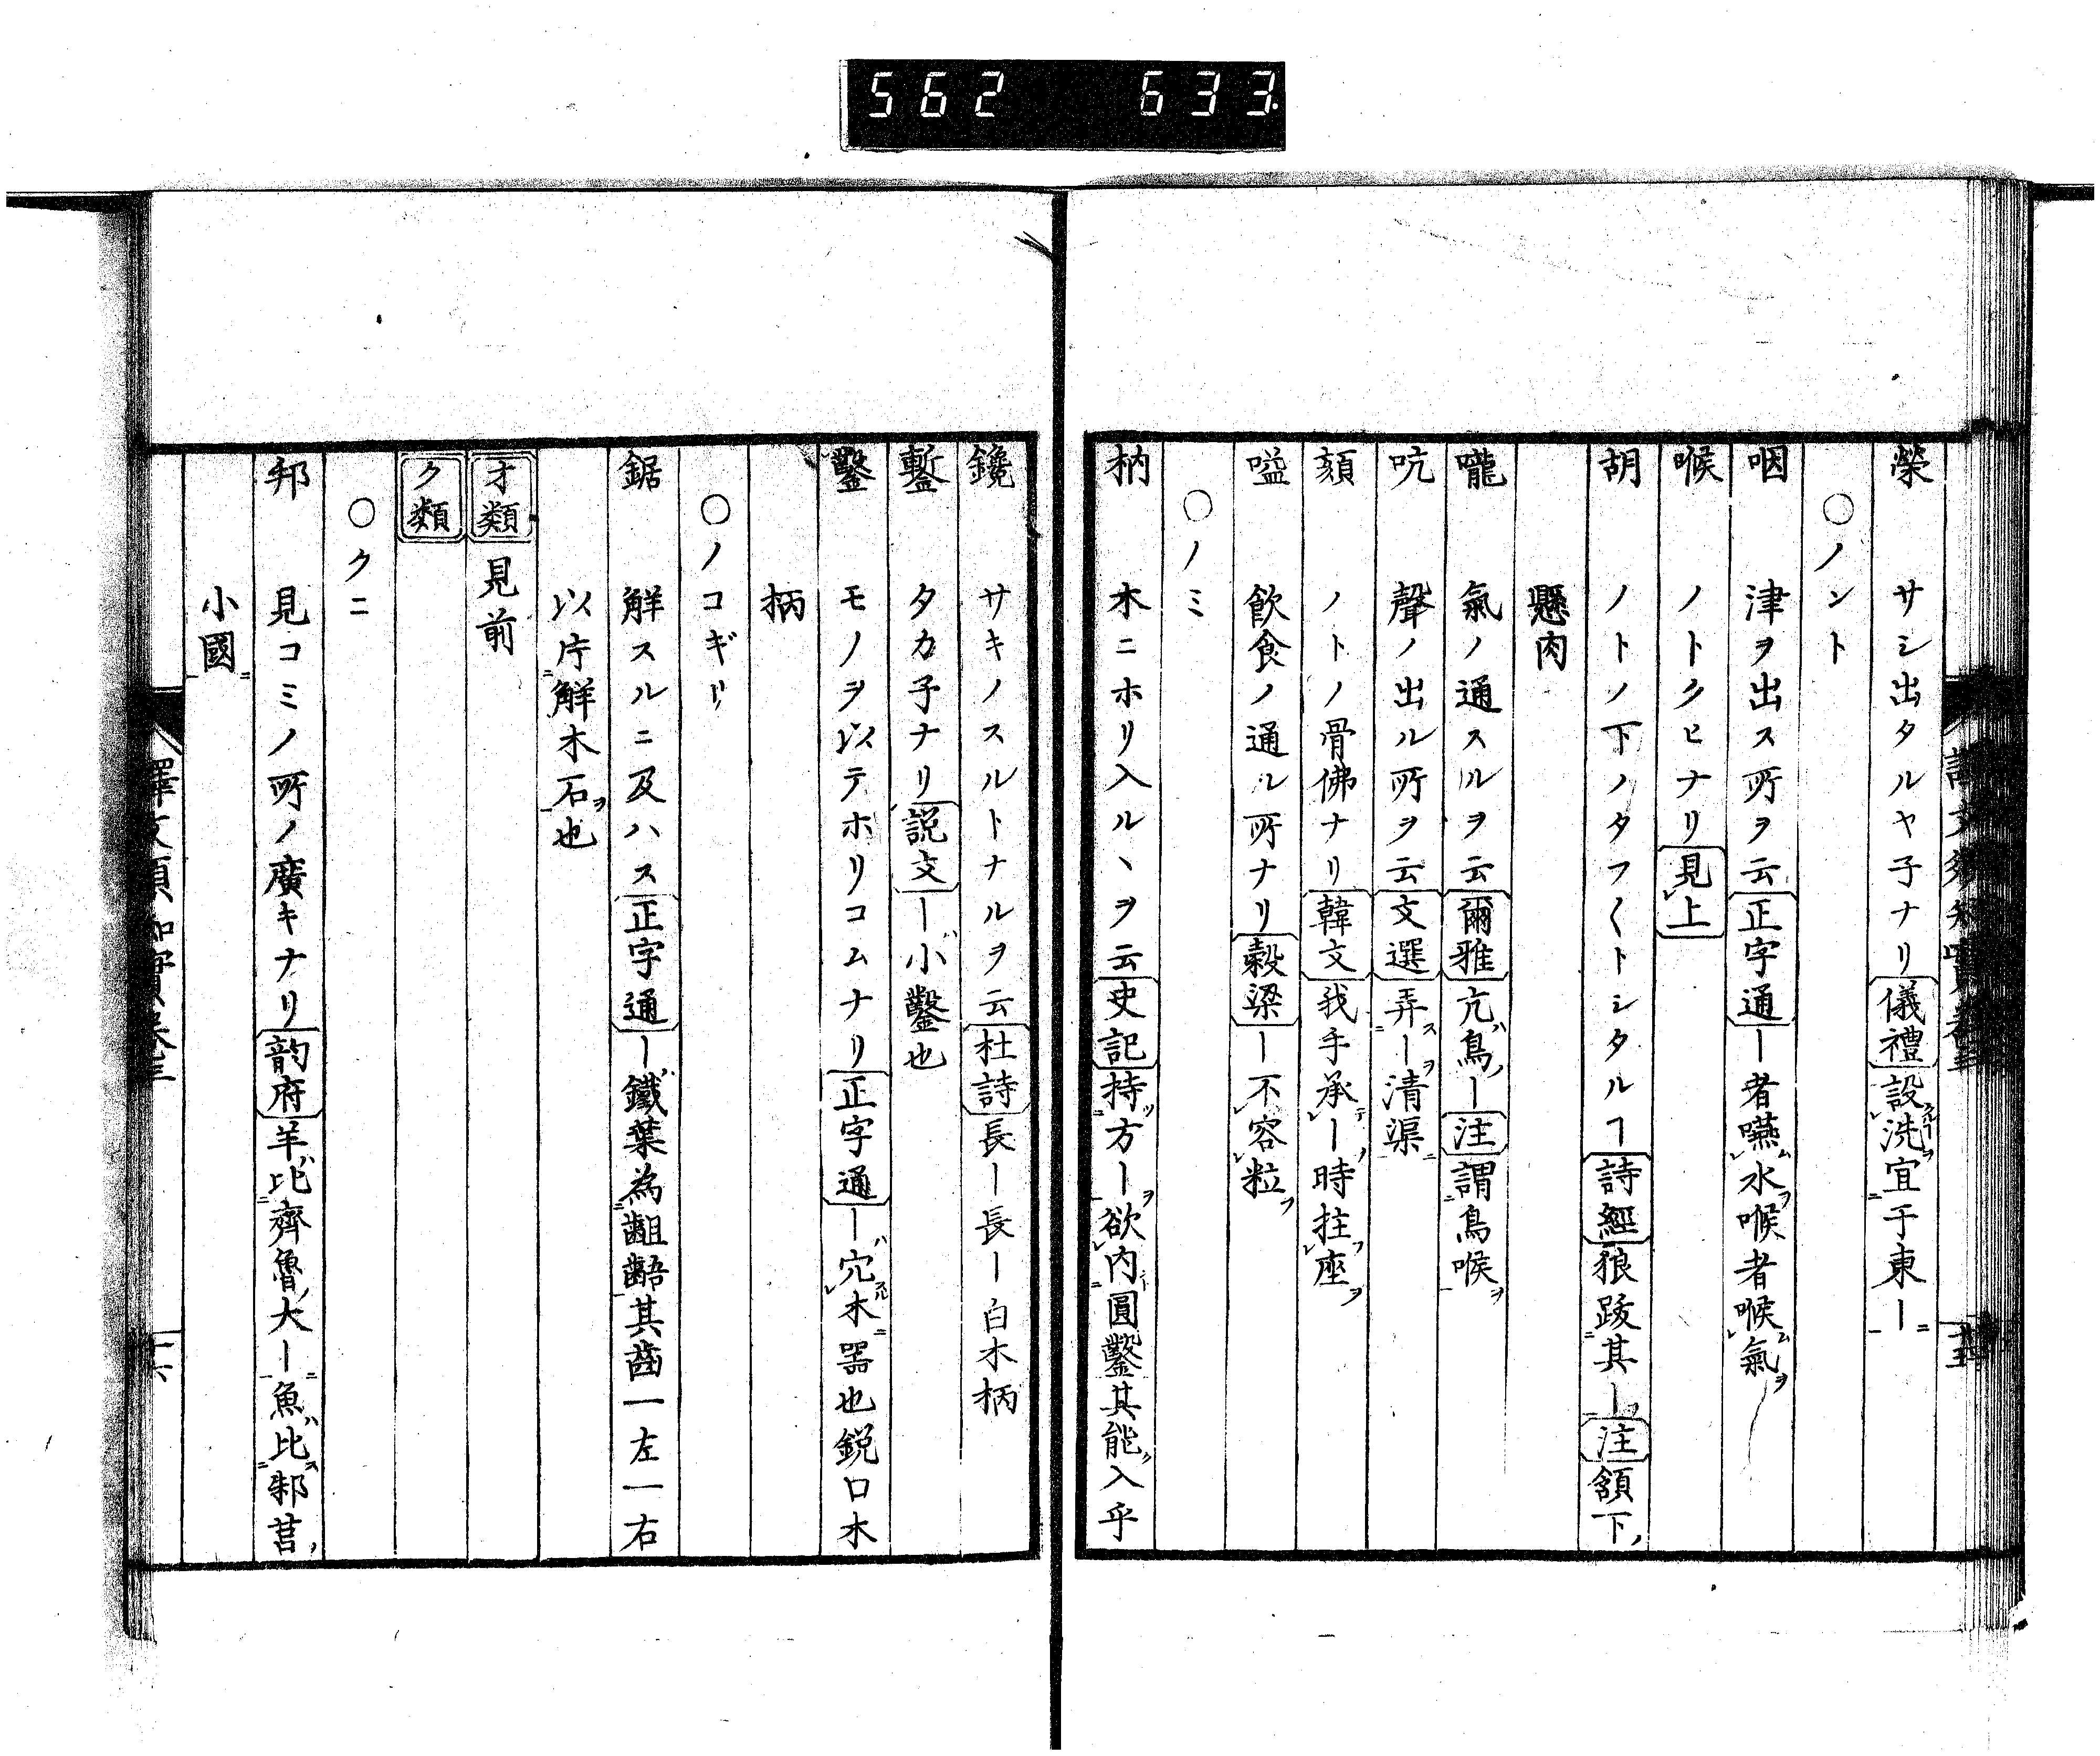 562 633
榮 サシ出タルヤ子ナリ儀禮設洗宜于東ー
○ノント
咽 津ヲ出ス所ヲ云正字通ー者嚥水喉者喉氣
喉 ノトクヒナリ見上
胡 ノトノ下ノタフ〱トシタルヿ詩經狼跋其ー注頷下
懸肉
嚨 氣ノ通スルヲ云爾雅亢鳥ー注謂鳥喉
吭 聲ノ出ル所ヲ云文選弄ー清渠
頦 ノトノ骨佛ナリ韓文我手承ー時拄座
嗌 飲食ノ通ル所ナリ穀梁ー不容粒
○ノミ
枘 木ニホリ入ルヽヲ云史記持方ー欲内圓鑿其能入乎
鑱 サキノスルトナルヲ云杜詩長ー長ー白木柄
鏨 タカ子ナリ説文ー小鑿也
鑿 モノヲ以テホリコムナリ正字通ー穴木器也鋭口木
柄
○ノコギリ
鋸 解スルニ及ハス正字通ー鐵葉為齟齬其齒一左一右
以片解木石也
オ類 見前
ク類
○クニ
邦 見コミノ所ノ廣キナリ韵府羊比齊魯大ー魚比邾莒
小國
譯文須知實卷三